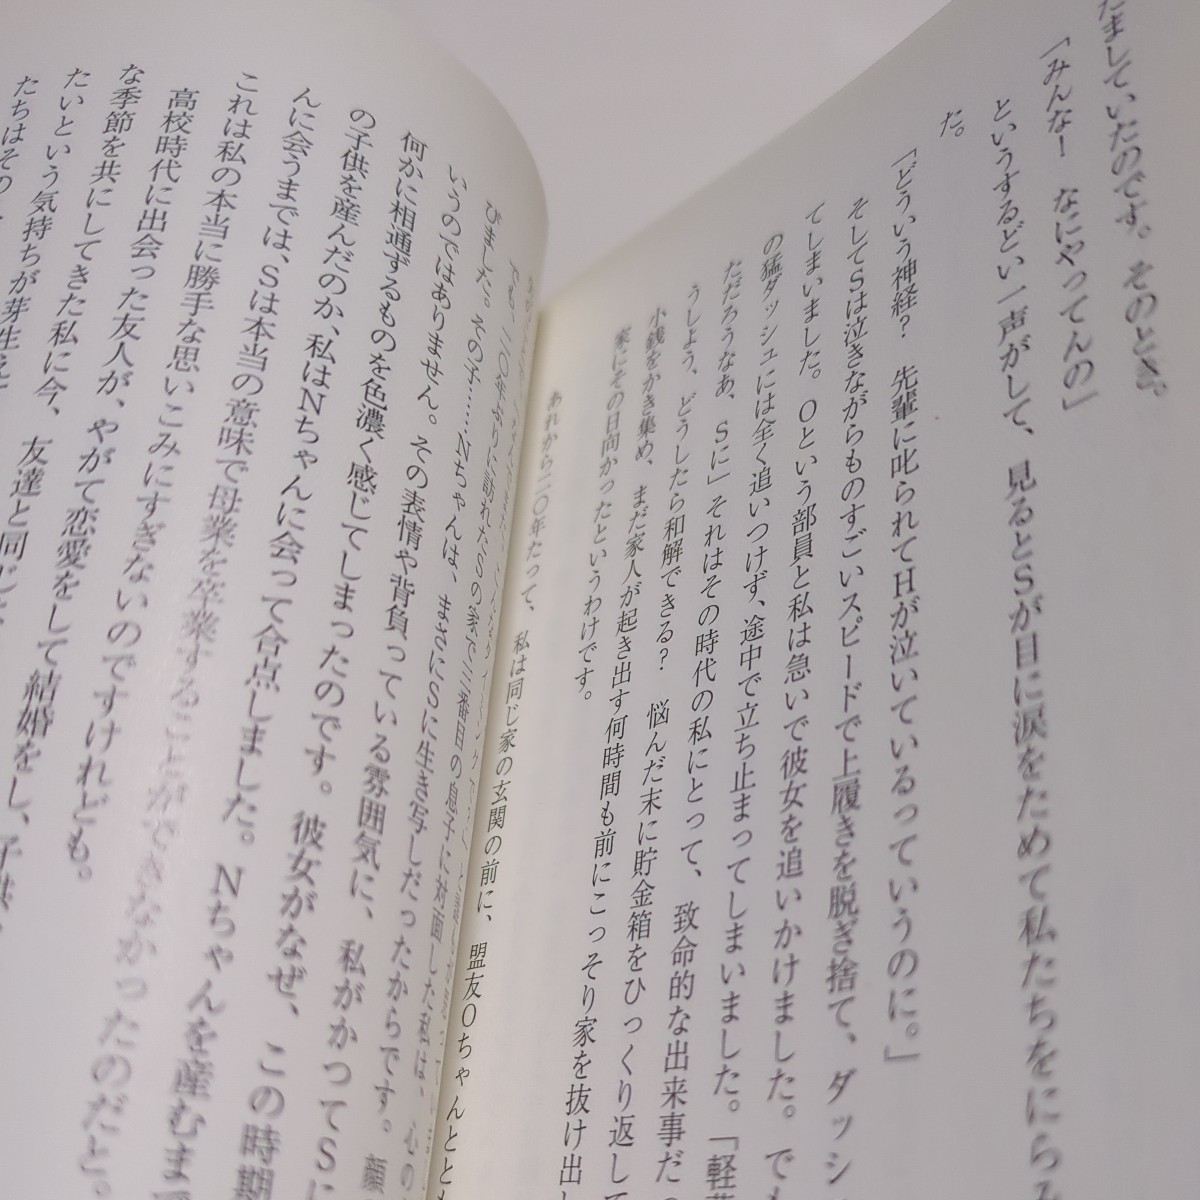 たましていたのです。そのとき。
「みんなー　なにやってんの」
というするどい一声がして、見るとSが目に涙をためて私たちをにらみ
た。
「どういう神経？　先輩に叱られてHが泣いているっていうのに。」
そしてSは泣きながらものすごいスピードで上履きを脱ぎ捨て、ダッシ
てしまいました。Oという部員と私は急いで彼女を追いかけました。でも
の猛ダッシュには全く追いつけず、途中で立ち止まってしまいました。「軽
ただろうなあ、Sに」それはその時代の私にとって、致命的な出来事だっ
うしよう、どうしたら和解できる？　悩んだ末に貯金箱をひっくり返して
小銭をかき集め、まだ家人が起き出す何時間も前にこっそり家を抜け出し
家にその日向かったというわけです。
あれから二〇年たって、私は同じ家の玄関の前に、盟友Oちゃんととも
びました。その子……Nちゃんは、まさにSに生き写しだったからです。顔
いうのではありません。その表情や背負っている雰囲気に、私がかつてSに
何かに相通ずるものを色濃く感じてしまったのです。彼女がなぜ、この時期
の子供を産んだのか、私はNちゃんに会って合点しました。Nちゃんを産むまで
んに会うまでは、Sは本当の意味で母業を卒業することができなかったのだと。
これは私の本当に勝手な思いこみにすぎないのですけれども。
高校時代に出会った友人が、やがて恋愛をして結婚をし、子供
な季節を共にしてきた私に今、友達と同じ
たいという気持ちが芽生え
たちはその